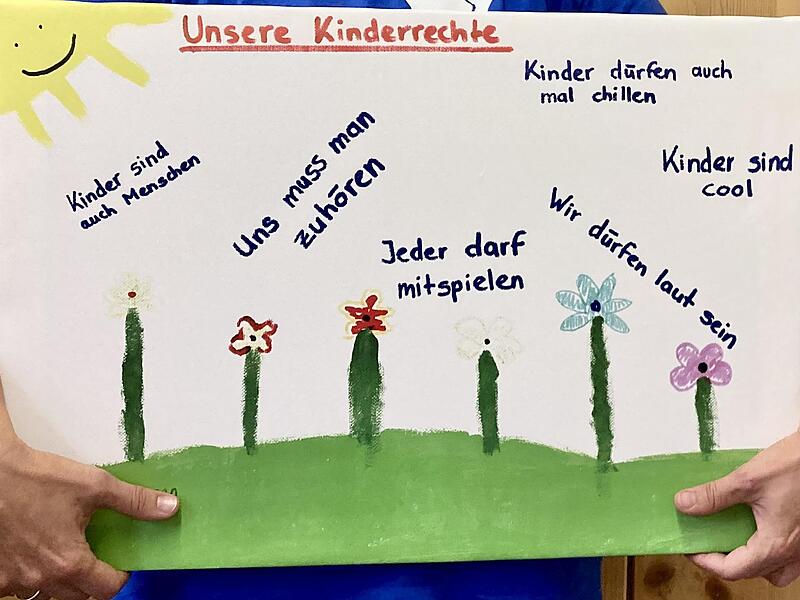 Unsere Kinderrechte
Kinder dürfen auch
mal chillen
Kinder sind
auch Menschen
Uns muss man
zuhören
Kinder sind
cool
Jeder darf
mitspielen
Wir dürfen laut sein